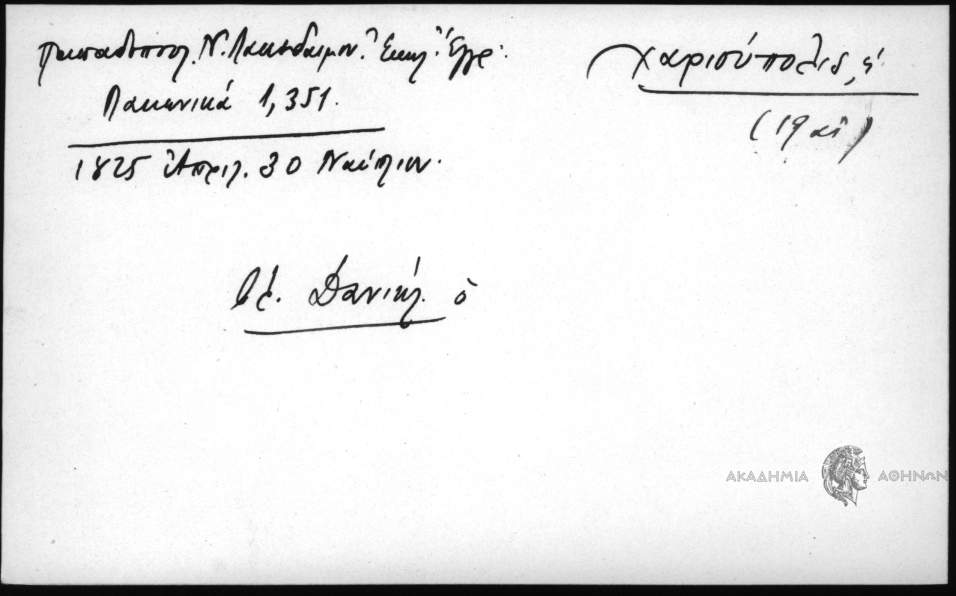 Παπαδοπουλ. Ν. Λακεδαιμον. Ἐκκλ. Ἔγγρ.
Λακωνικά 1, 351.
1825 Ἀπριλ. 30 Ναύπλιον.
Χαριούπολις, ἡ.
(19 αἰ)
βλ. Δανιήλ ὁ
ΑΚΑΔΗΜΙΑ ΑΘΗΝΩΝ